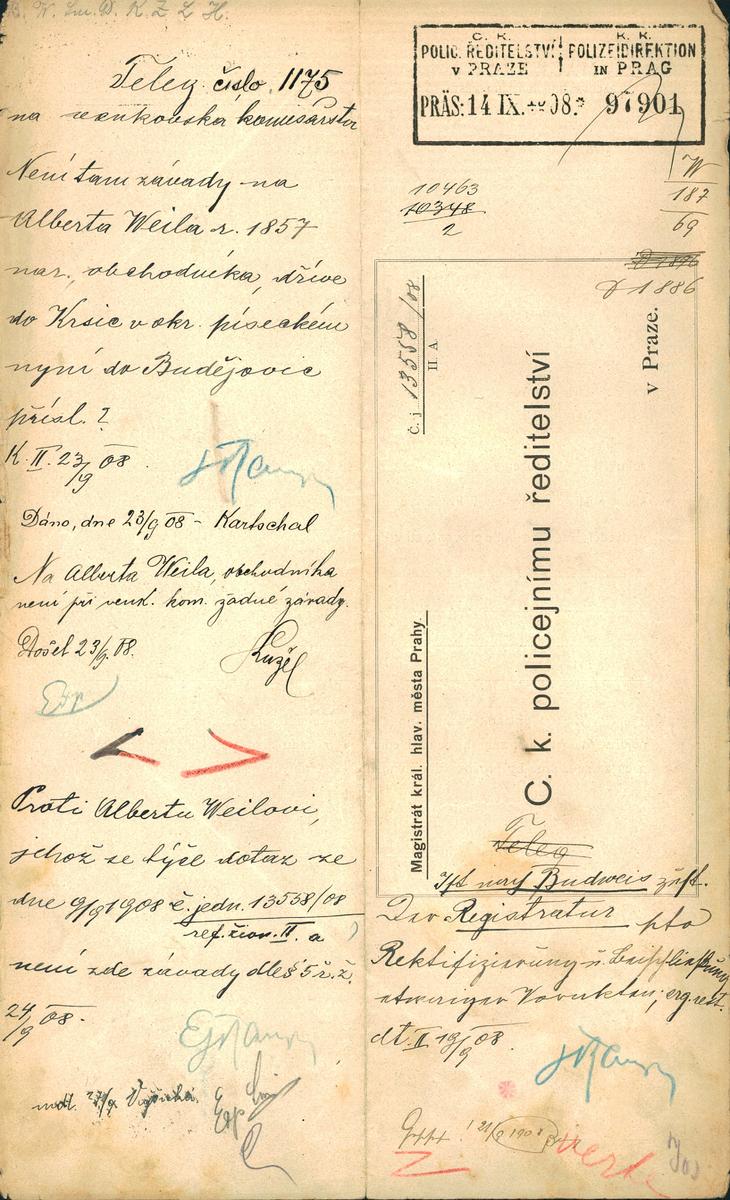 Teleg. číslo 1175
na venkovská komisařství
Není tam závady na
Alberta Weila r. 1857
nar., obchodníka, dříve
do Krsic v okr. píseckém
nyní do Budějovic
přísl.?
K. II. 23/9 08.
Dáno, dne 23/9 08 - Kartschal
Na Alberta Weila, obchodníka
není při venk. kom. žádné závady.
Došel 23/9. 08.
Kužel
Proti Albertu Weilovi,
jehož se týče dotaz ze
dne 9/9 1908 č. jedn. 13558/08
ref. živn. II. a
není zde závady dle § 5 ř. ž.
24/9 08.
C. K. K. K.
POLIC. ŘEDITELSTVÍ POLIZEIDIREKTION
V PRAZE IN PRAG
PRÄS: 14 IX. 08. 97901
10463
10348
2
W
187
69
1886
Č. j. 13558/08
II. A
Magistrát král. hlav. města Prahy
C. k. policejnímu ředitelství
v Praze.
Teleg
Ist nach Budweis zust.
Der Registratur pto
Rektifizierung u. Beischließung
etwaiger Vorakten; erg. rest.
dt. II 19/9 08.